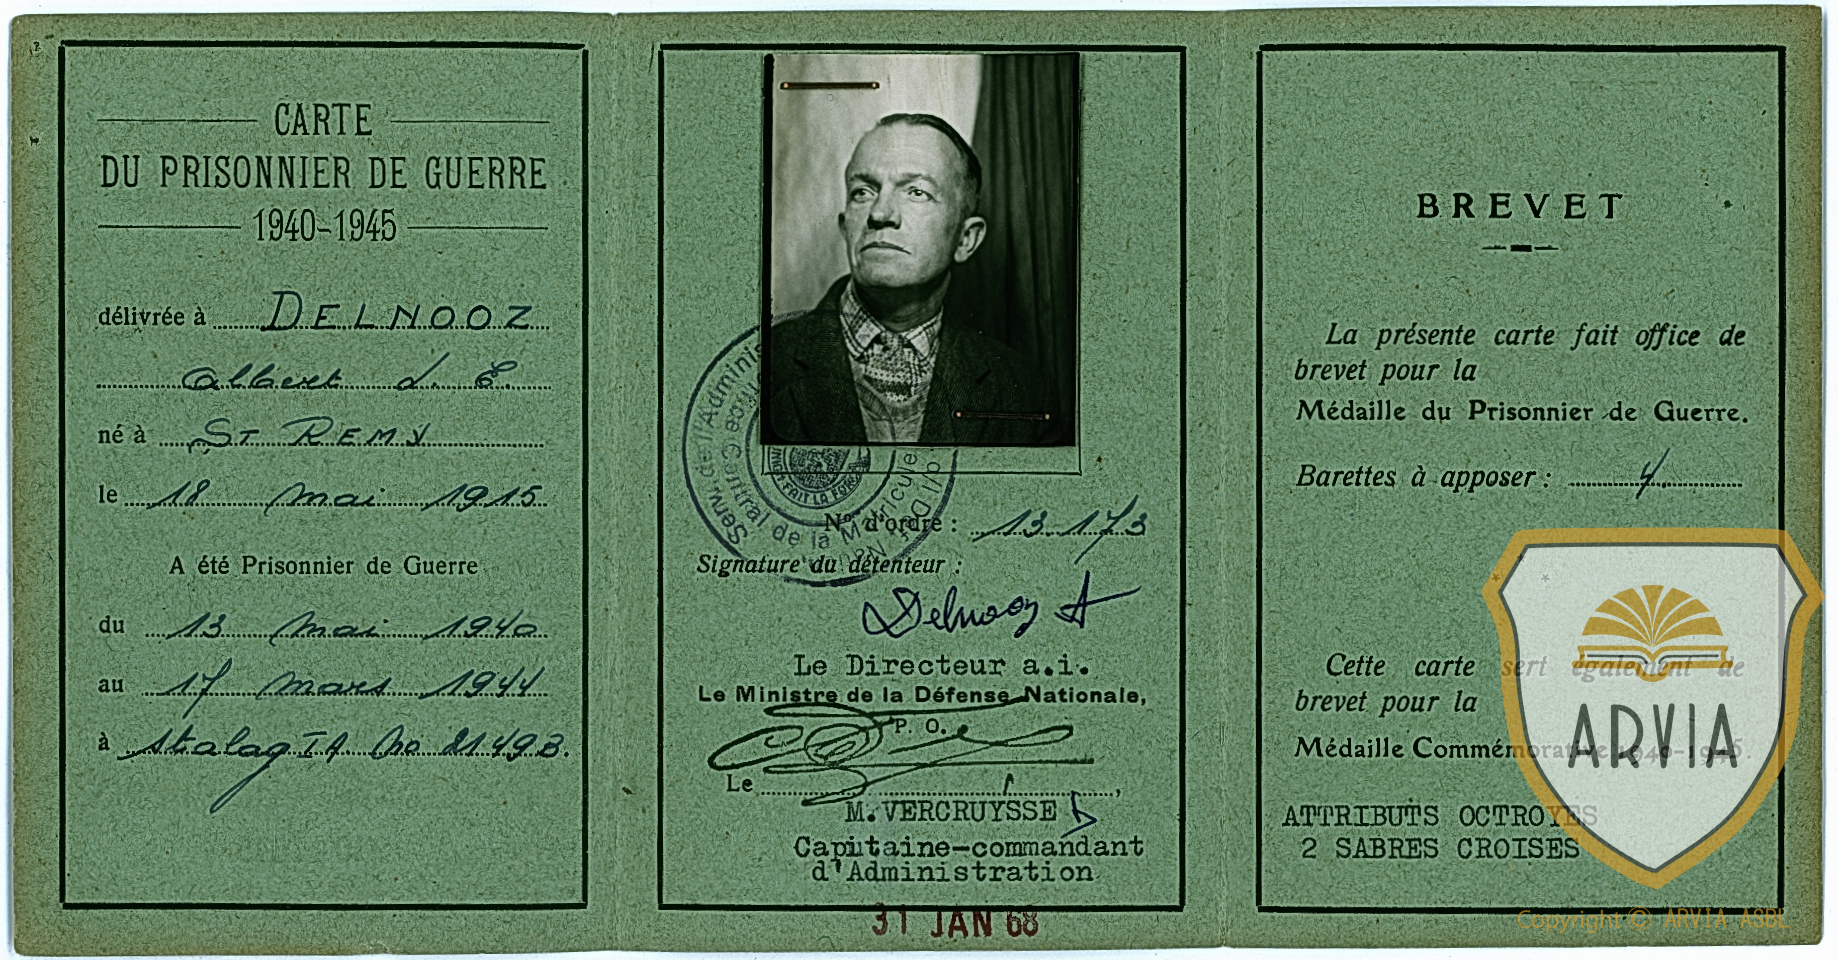 CARTE
DU PRISONNIER DE GUERRE
1940-1945
délivrée à DELNOOZ
Albert J. G.
né à ST REMY
le 18 mai 1915
A été Prisonnier de Guerre
du 13 mai 1940
au 17 mars 1944
à Stalag IA No 21493.
No. d'ordre : 13.173
Signature du détenteur :
Delnooz A
Le Directeur a.i.
Le Ministre de la Défense Nationale,
P. O.
Le
M. VERCRUYSSE
Capitaine-commandant
d'Administration
31 JAN 68
BREVET
La présente carte fait office de
brevet pour la
Médaille du Prisonnier de Guerre.
Barettes à apposer : 4.
Cette carte sert également de
brevet pour la
Médaille Commémorative 1940-1945.
ATTRIBUTS OCTROYES
2 SABRES CROISES
ARVIA
Copyright © ARVIA ASBL